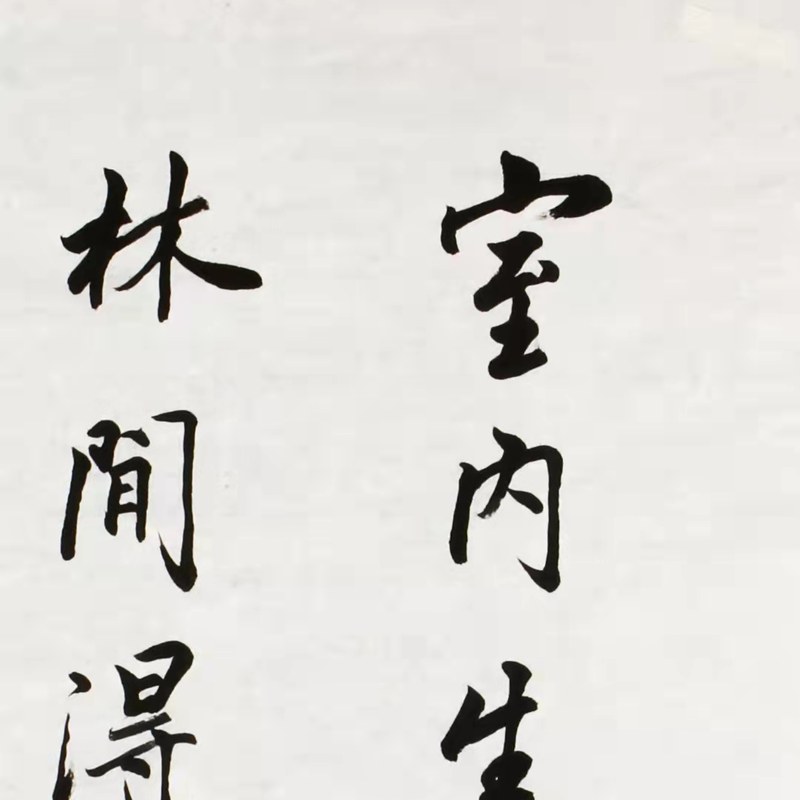 室内生
林間得